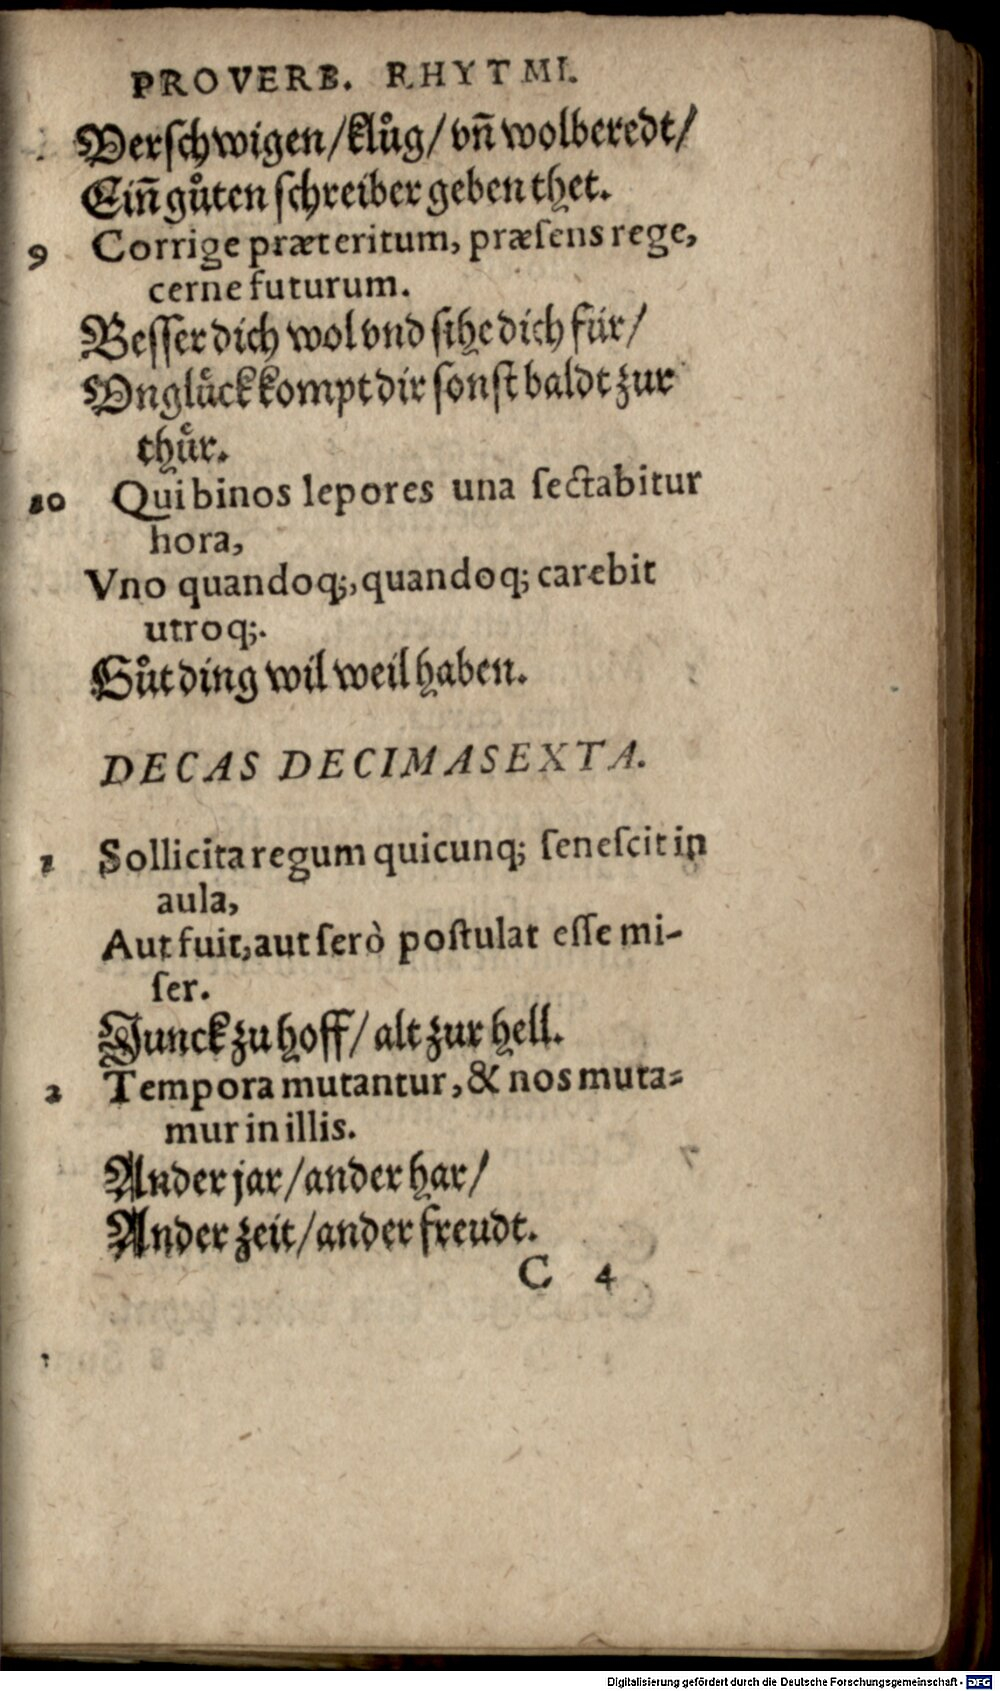 PROVERB. RHYTMI.
Verschwigen/klůg/vn̄ wolberedt/
Ein̄ gůten schreiber geben thet.
9 Corrige præteritum, præsens rege,
cerne futurum.
Besser dich wol vnd sihe dich für/
Vnglůck kompt dir sonst baldt zur
thůr.
10 Qui binos lepores una sectabitur
hora,
Vno quandoq;, quandoq; carebit
utroq;.
Gůt ding wil weil haben.
DECAS DECIMASEXTA.
1 Sollicita regum quicunq; senescit in
aula,
Aut fuit, aut serò postulat esse mi-
ser.
Junck zu hoff/ alt zur hell.
2 Tempora mutantur, & nos muta-
mur in illis.
Ander jar/ander har/
Ander zeit/ander freudt.
C 4
Digitalisierung gefördert durch die Deutsche Forschungsgemeinschaft - DFG